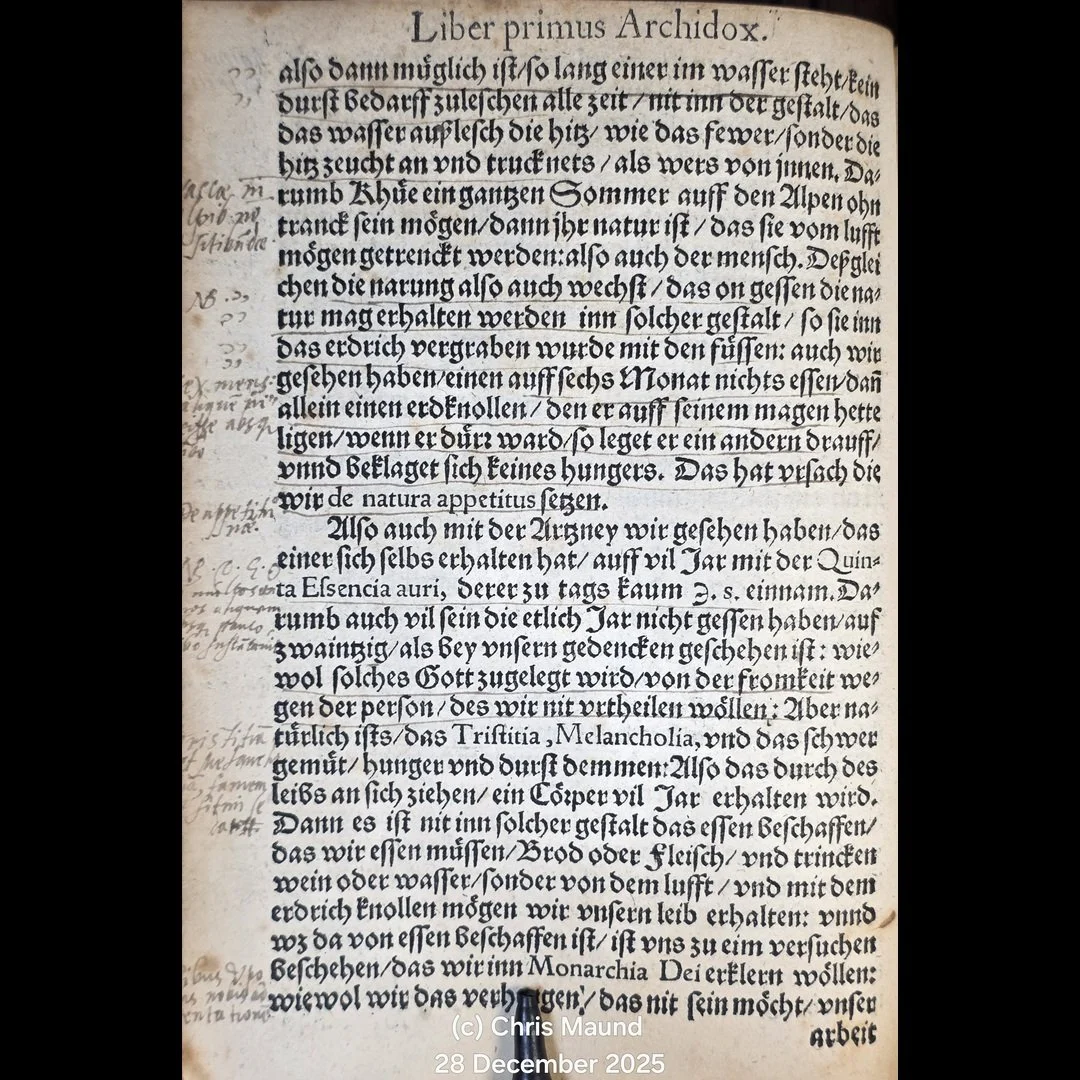 Liber primus Archidox.
also dann müglich ist/so lang einer im wasser steht/kein
durst bedarff zuleschen alle zeit/nit inn der gestalt/das
das wasser außlesch die hitz/wie das fewer/sonder die
hitz zeucht an vnd trucknets/als wers von jnnen. Da-
rumb Khüe ein gantzen Sommer auff den Alpen ohn
tranck sein mögen/dann jhr natur ist/das sie vom lufft
mögen getrenckt werden:also auch der mensch. Deßglei
chen die narung also auch wechst/das on gessen die na-
tur mag erhalten werden inn solcher gestalt/so sie inn
das erdrich vergraben wurde mit den füssen: auch wir
gesehen haben/einen auff sechs Monat nichts essen/dañ
allein einen erdknollen/den er auff seinem magen hette
ligen/wenn er dürr ward/so leget er ein andern drauff/
vnnd beklaget sich keines hungers. Das hat vrsach die
wir de natura appetitus setzen.
Also auch mit der Artzney wir gesehen haben/das
einer sich selbs erhalten hat/auff vil Jar mit der Quin-
ta Essencia auri, derer zu tags kaum ℈. s. einnam. Da-
rumb auch vil sein die etlich Jar nicht gessen haben/auf
zwaintzig/als bey vnsern gedencken geschehen ist: wie-
wol solches Gott zugelegt wird/von der fromkeit we-
gen der person/des wir nit vrtheilen wöllen: Aber na-
türlich ists/das Tristitia, Melancholia, vnd das schwer
gemüt/hunger vnd durst demmen:Also das durch des
leibs an sich ziehen/ein Cörper vil Jar erhalten wird.
Dann es ist nit inn solcher gestalt das essen beschaffen/
das wir essen müssen/Brod oder Fleisch/vnd trincken
wein oder wasser/sonder von dem lufft/vnd mit dem
erdrich knollen mögen wir vnsern leib erhalten: vnnd
wz da von essen beschaffen ist/ist vns zu eim versuchen
beschehen/das wir inn Monarchia Dei erklern wöllen:
wiewol wir das /das nit sein möcht/vnser
arbeit
(c) Chris Maund
28 December 2025